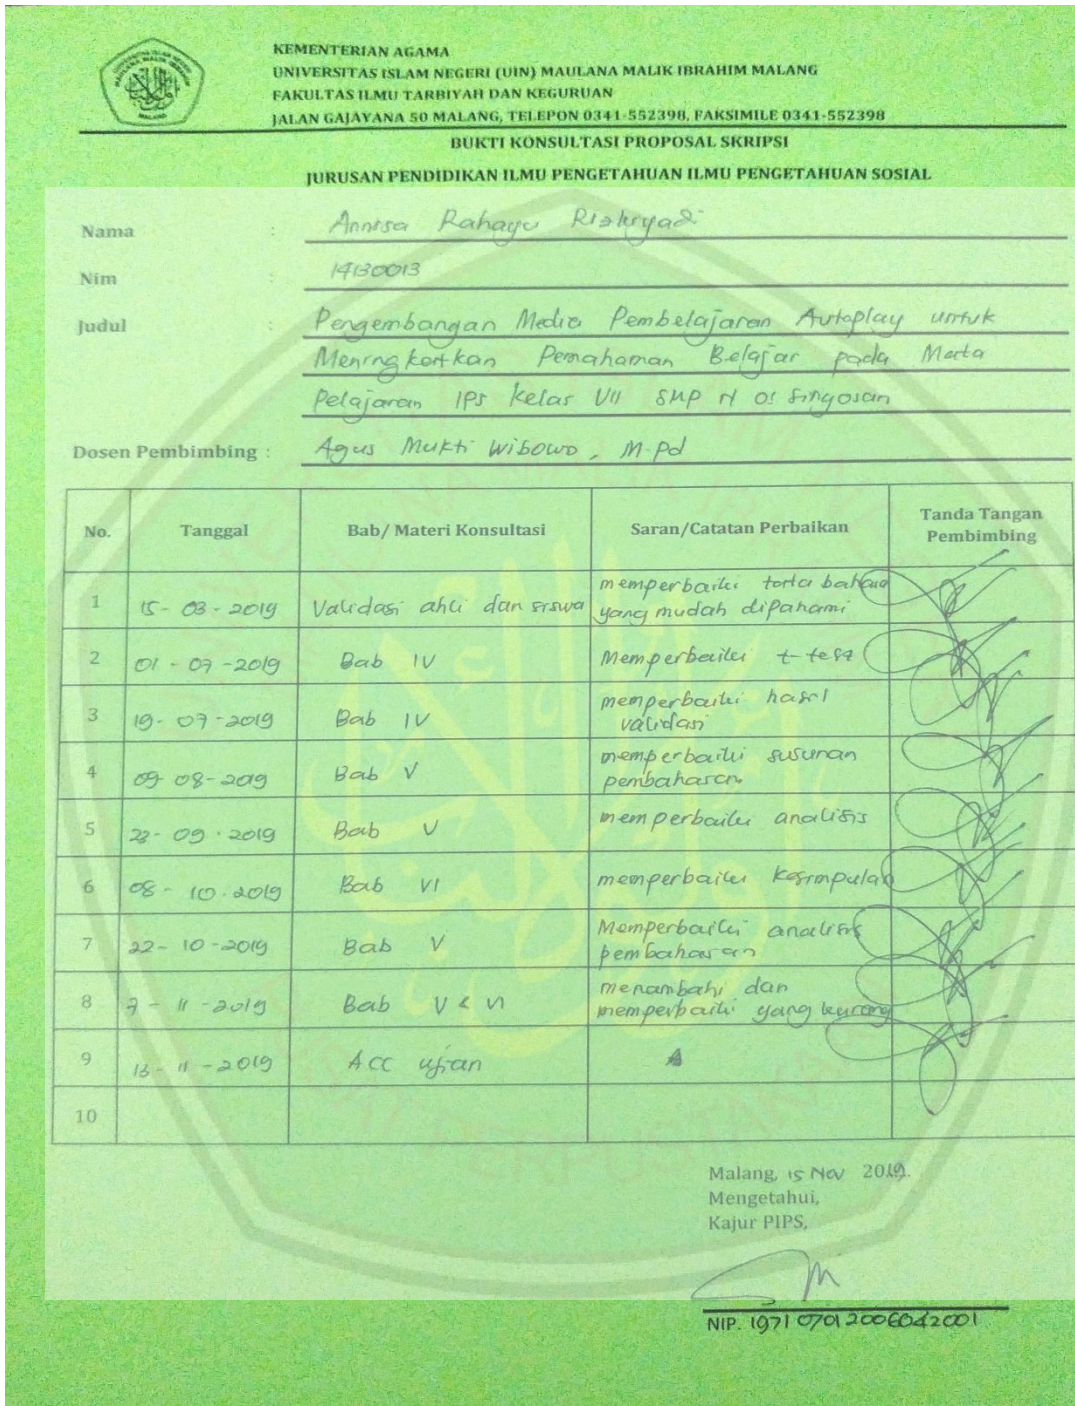 KEMENTERIAN AGAMA
UNIVERSITAS ISLAM NEGERI (UIN) MAULANA MALIK IBRAHIM MALANG
FAKULTAS ILMU TARBIYAH DAN KEGURUAN
JALAN GAJAYANA 50 MALANG, TELEPON 0341-552398, FAKSIMILE 0341-552398
BUKTI KONSULTASI PROPOSAL SKRIPSI
JURUSAN PENDIDIKAN ILMU PENGETAHUAN ILMU PENGETAHUAN SOSIAL
Nama : Annisa Rahayu
Nim : 14130013
Judul : Pengembangan Media Pembelajaran Autoplay untuk
Meningkatkan Pemahaman Belajar pada Mata
Pelajaran IPS Kelas VII SMP N 01 Singosari
Dosen Pembimbing : Agus Mukti Wibowo, M.Pd
No. Tanggal Bab/ Materi Konsultasi Saran/Catatan Perbaikan Tanda Tangan Pembimbing
1 15-03-2019 Validasi ahli dan siswa memperbaiki tata bahasa yang mudah dipahami
2 01-07-2019 Bab IV Memperbaiki t-test
3 19-07-2019 Bab IV memperbaiki hasil validasi
4 09-08-2019 Bab V memperbaiki susunan pembahasan
5 -09-2019 Bab V memperbaiki analisis
6 08-10-2019 Bab VI memperbaiki kesimpulan
7 22-10-2019 Bab V Memperbaiki analisis pembahasan
8 7-11-2019 Bab V & VI menambahi dan memperbaiki yang kurang
9 13-11-2019 ACC ujian
10
Malang, 15 Nov 2019.
Mengetahui,
Kajur PIPS,
NIP. 197107012006042001